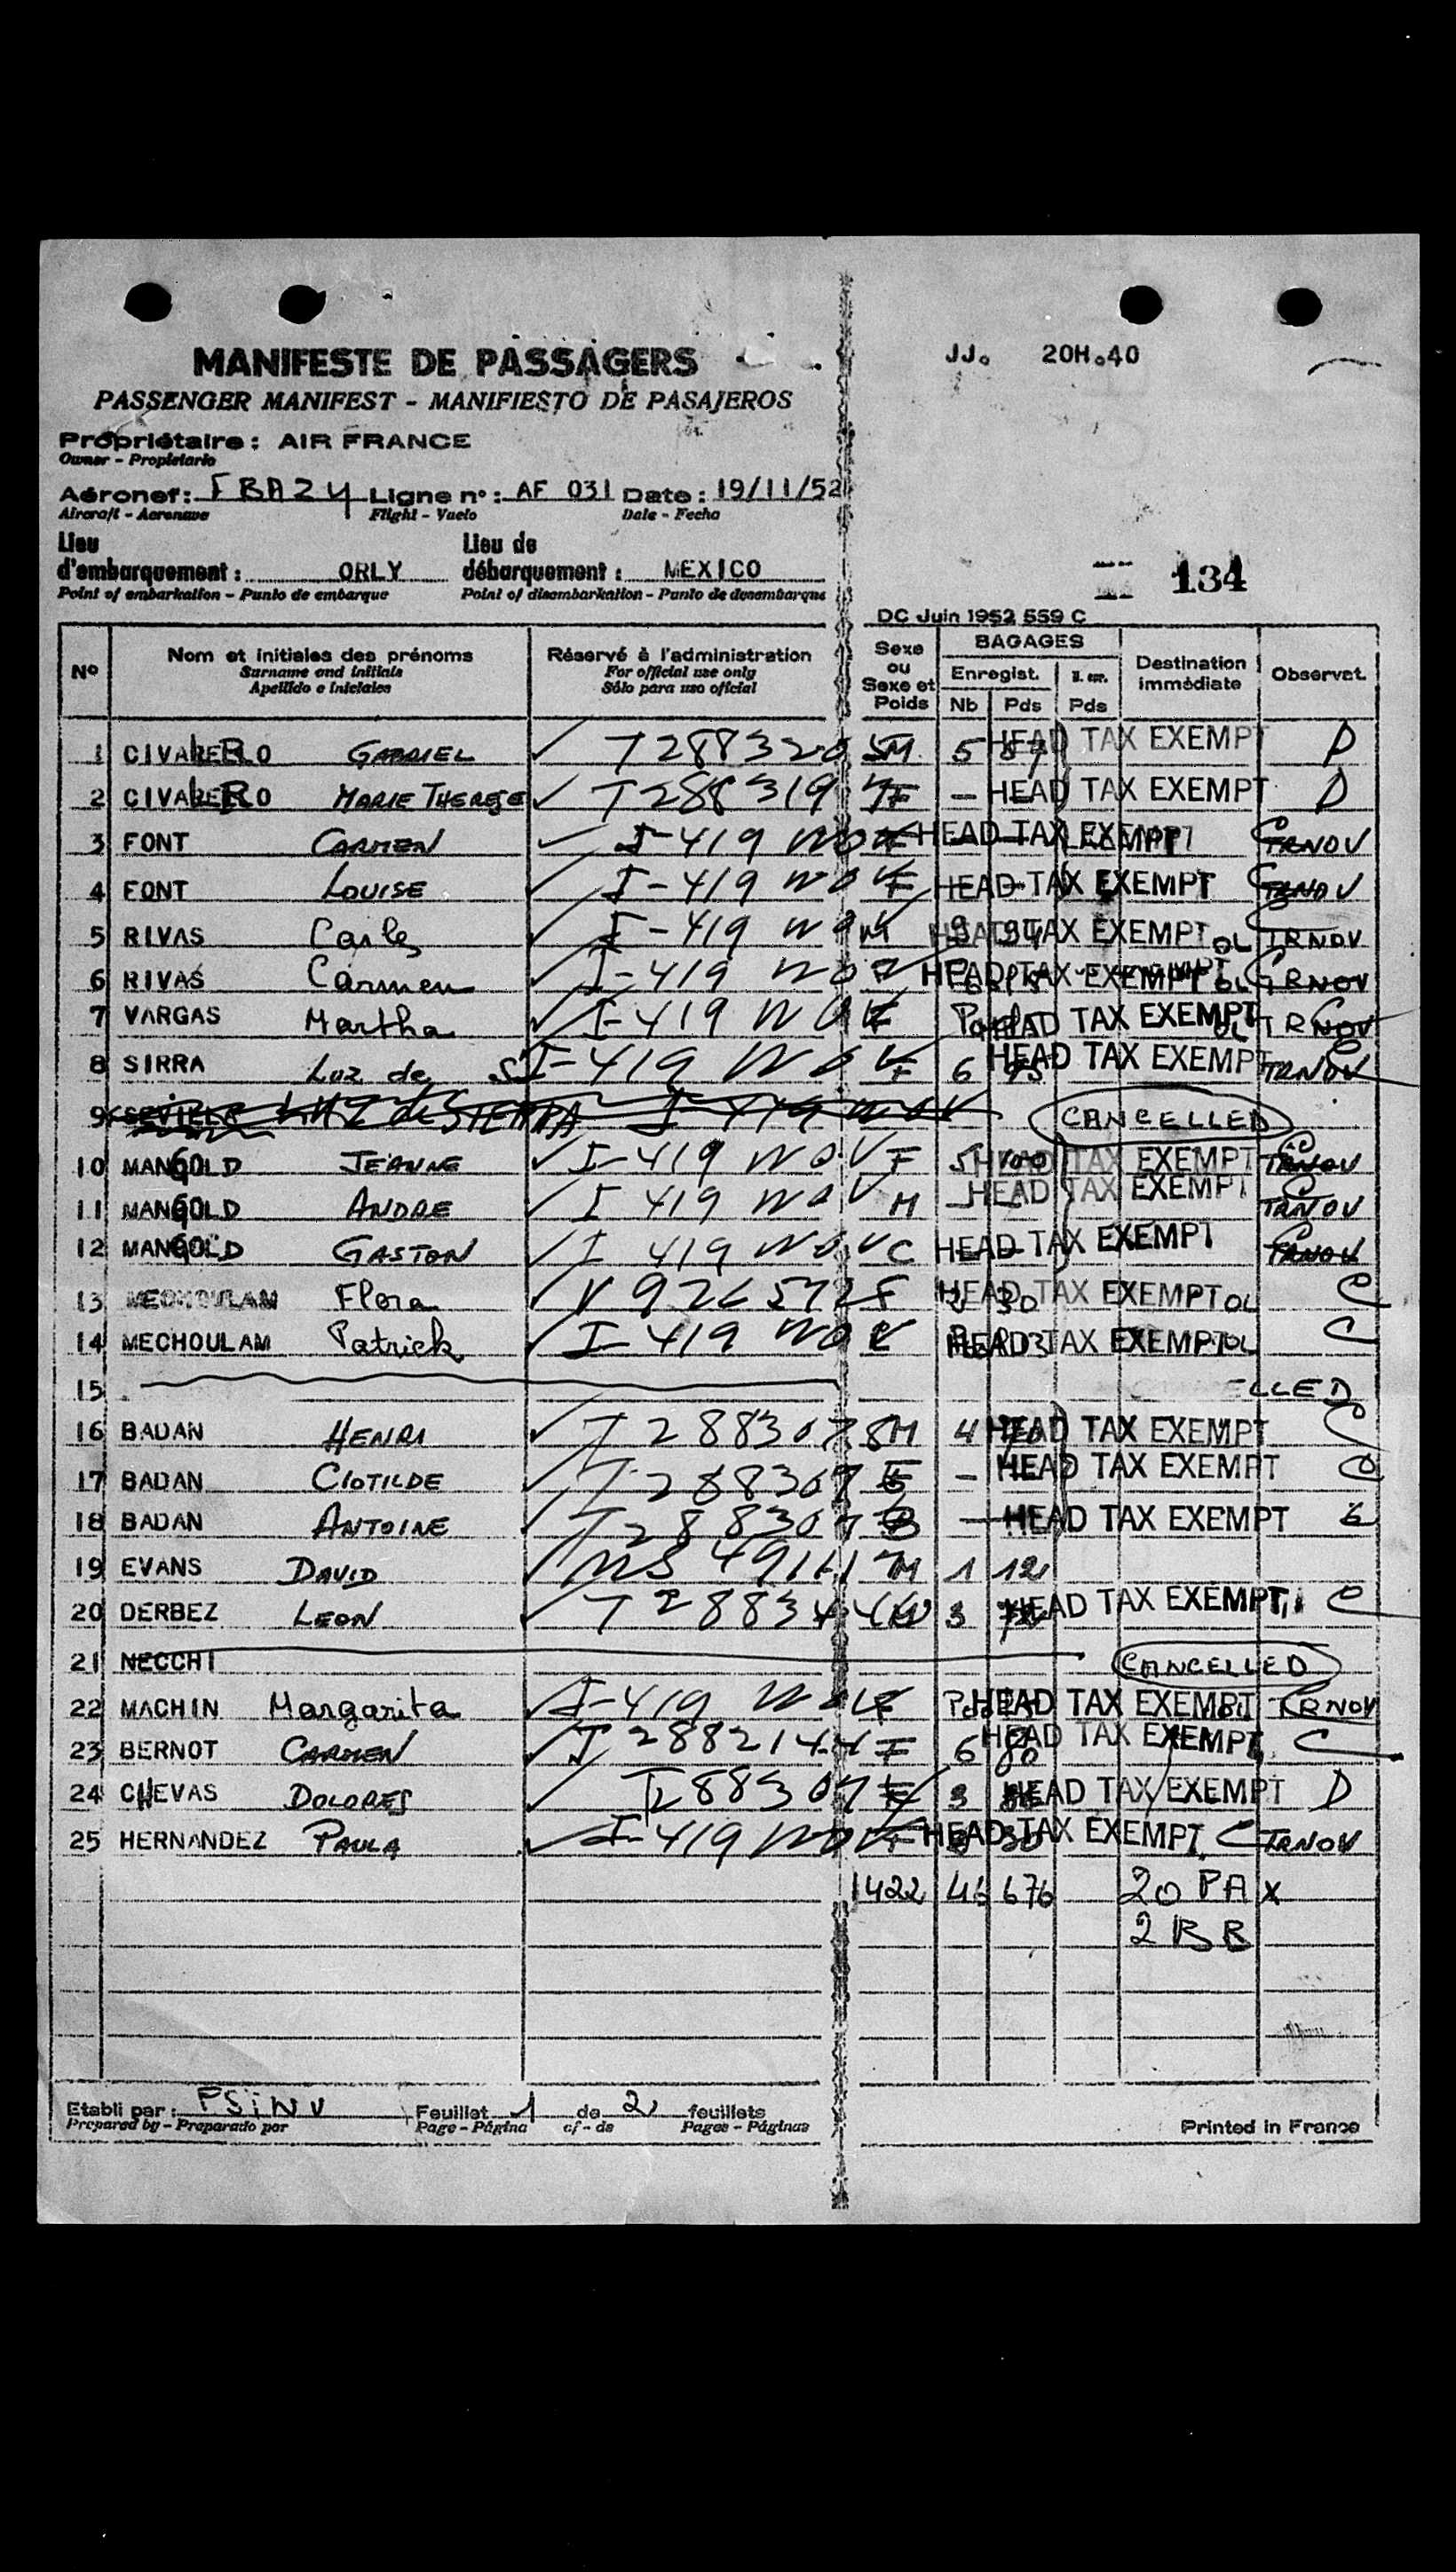 MANIFESTE DE PASSAGERS
JJ. 20H.40
PASSENGER MANIFEST - MANIFIESTO DE PASAJEROS
Propriétaire : AIR FRANCE
Owner - Propietario
Aéronef : FBAZY Ligne n° : AF 031 Date : 19/11/52
Aircraft - Aeronave Flight - Vuelo Date - Fecha
Lieu d'embarquement : ORLY Lieu de débarquement : MEXICO
Point of embarkation - Punto de embarque Point of disembarkation - Punto de desembarque
134
DC Juin 1952 559 C
N° Nom et initiales des prénoms Réservé à l'administration Sexe ou Sexe et Poids BAGAGES Destination immédiate Observat.
Surname and initials For official use only Enregist.
Apellido e iniciales Sólo para uso oficial Nb Pds Pds
1 GABRIEL T 288320 M 5 HEAD TAX EXEMPT D
2 MARIE THERESE T 288319 F - HEAD TAX EXEMPT D
3 FONT CARMEN I-419 NOV HEAD TAX EXEMPT C TRNOV
4 FONT LOUISE I-419 NOV F HEAD TAX EXEMPT C TRNOV
5 RIVAS Carlos I-419 NOV M HEAD TAX EXEMPT OL TRNOV
6 RIVAS Carmen I-419 NOV HEAD TAX EXEMPT OL TRNOV
7 VARGAS Martha I-419 NOV HEAD TAX EXEMPT OL TRNOV
8 SIRRA Luz de S I-419 NOV F 6 HEAD TAX EXEMPT TRNOV
9 I-419 NOV CANCELLED
10 MANGOLD JEANNE I-419 NOV F 5 100 HEAD TAX EXEMPT C TRNOV
11 MANGOLD ANDRE I 419 NOV M HEAD TAX EXEMPT C TRNOV
12 MANGOLD GASTON I 419 NOV C HEAD TAX EXEMPT C TRNOV
13 MECHOULAM Flora F 30 HEAD TAX EXEMPT OL C
14 MECHOULAM Patrick I-419 NOV HEAD TAX EXEMPT OL C
15
16 BADAN HENRI T 2883078 M 4 HEAD TAX EXEMPT C
17 BADAN CLOTILDE T 28830 - HEAD TAX EXEMPT
18 BADAN ANTOINE T 28830 HEAD TAX EXEMPT
19 EVANS DAVID M 1 12
20 DERBEZ LEON T 28834 3 HEAD TAX EXEMPT C
21 NECCHI CANCELLED
22 MACHIN Margarita I-419 NOV F HEAD TAX EXEMPT TRNOV
23 BERNOT CARMEN F 6 80 HEAD TAX EXEMPT C
24 CHEVAS DOLORES 3 HEAD TAX EXEMPT D
25 HERNANDEZ PAULA I-419 NOV F HEAD TAX EXEMPT C TRNOV
1422 46 676 20 PAX
2 BB
Etabli par : Feuillet 1 de 2 feuillets
Prepared by - Preparado por Page - Página of - de Pages - Páginas Printed in France